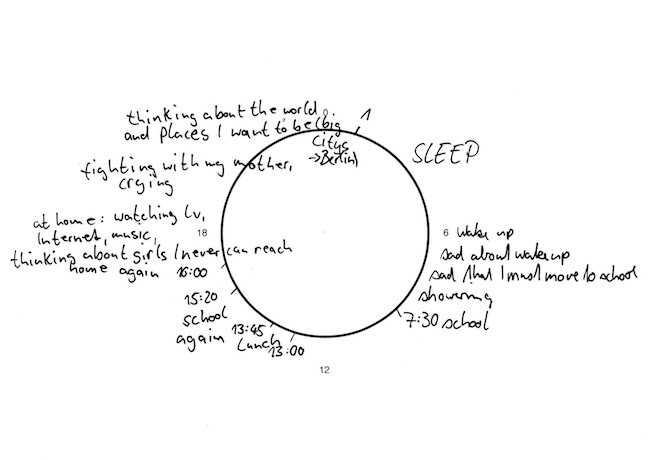 thinking about the world &
and places I want to be (big
citys
→Berlin)
1
SLEEP
fighting with my mother,
crying
at home: watching tv,
Internet, music,
thinking about girls I never can reach
home again 16:00
18
6 wake up
sad about wake up
sad that I must move to school
showering
7:30 school
15:20
school
again
13:45
lunch
13:00
12